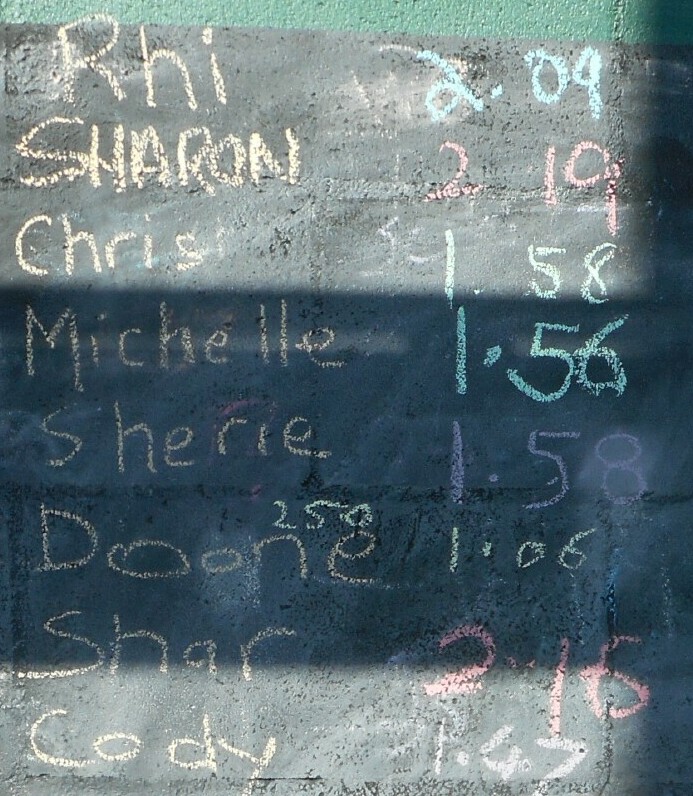 Rhi 2.09
SHARON 2 19
Chris 1. 58
Michelle 1.56
Sherie 1.58
250
Doone 1.06
Shar 2.16
Cody 1.47